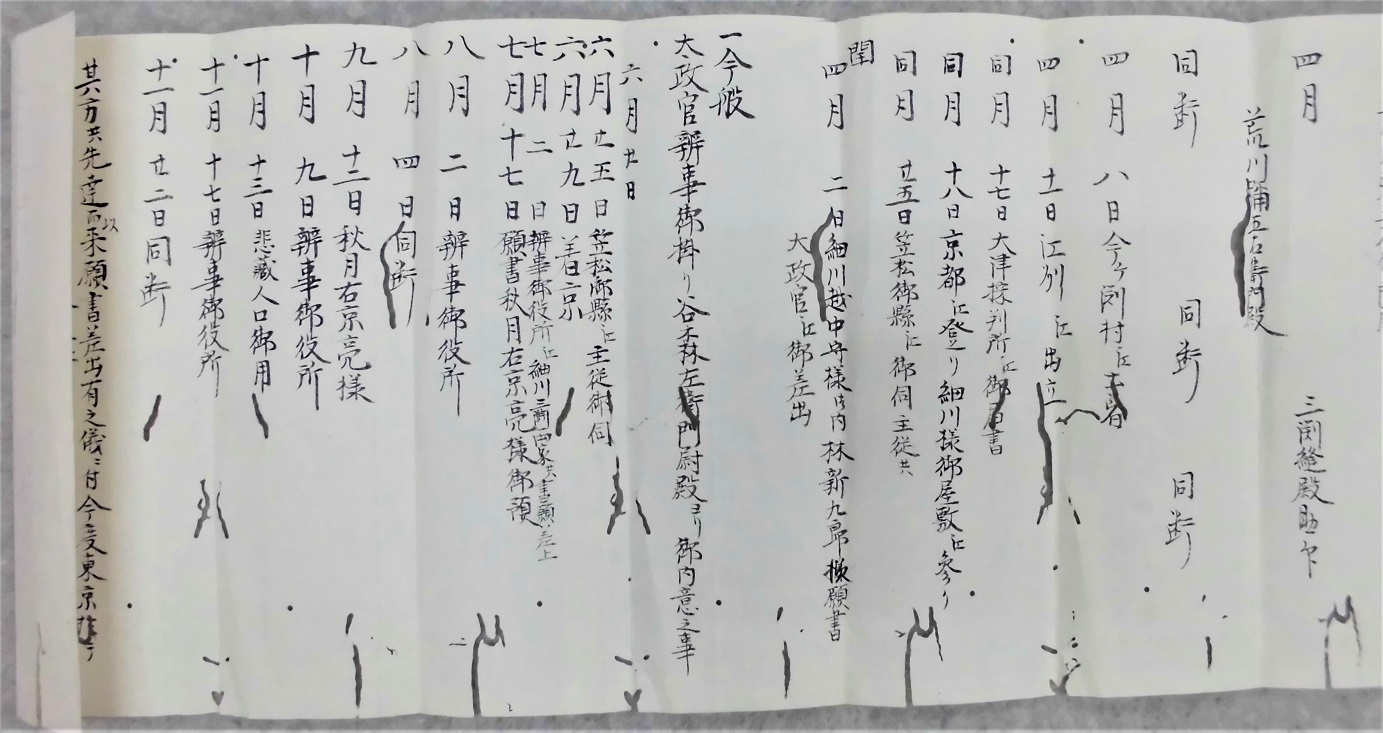 四月 三渕縫殿助
荒川 五右衛門殿
同断 同断 同断
四月 八日今ヶ渕村江
四月 十一日江州江出立
同月 十七日大津 判所江御
同月 十八日京都江登り細川様御屋敷江参り
同月 廿五日笠松御縣江御伺主従共
閏四月 二日細川越中守様 内林新九郎 願書
大政官江御差出
一今般
太政官辨事御掛り谷森左衛門尉殿ヨリ御内意之事
六月廿日
六月廿五日笠松御縣江主従御伺
六月廿九日 京
七月 二 日辨事御役所江細川三渕 家共書願差上
七月十七日願書秋月右京亮様御預
八月 二日辨事御役所
八月 四日同断
九月 十二日秋月右京亮様
十月 九日辨事御役所
十月 十三日悲蔵人口御用
十一月 十七日辨事御役所
十一月 廿二日同断
其方共先達而 以 願書差出有之儀ニ付今度東京